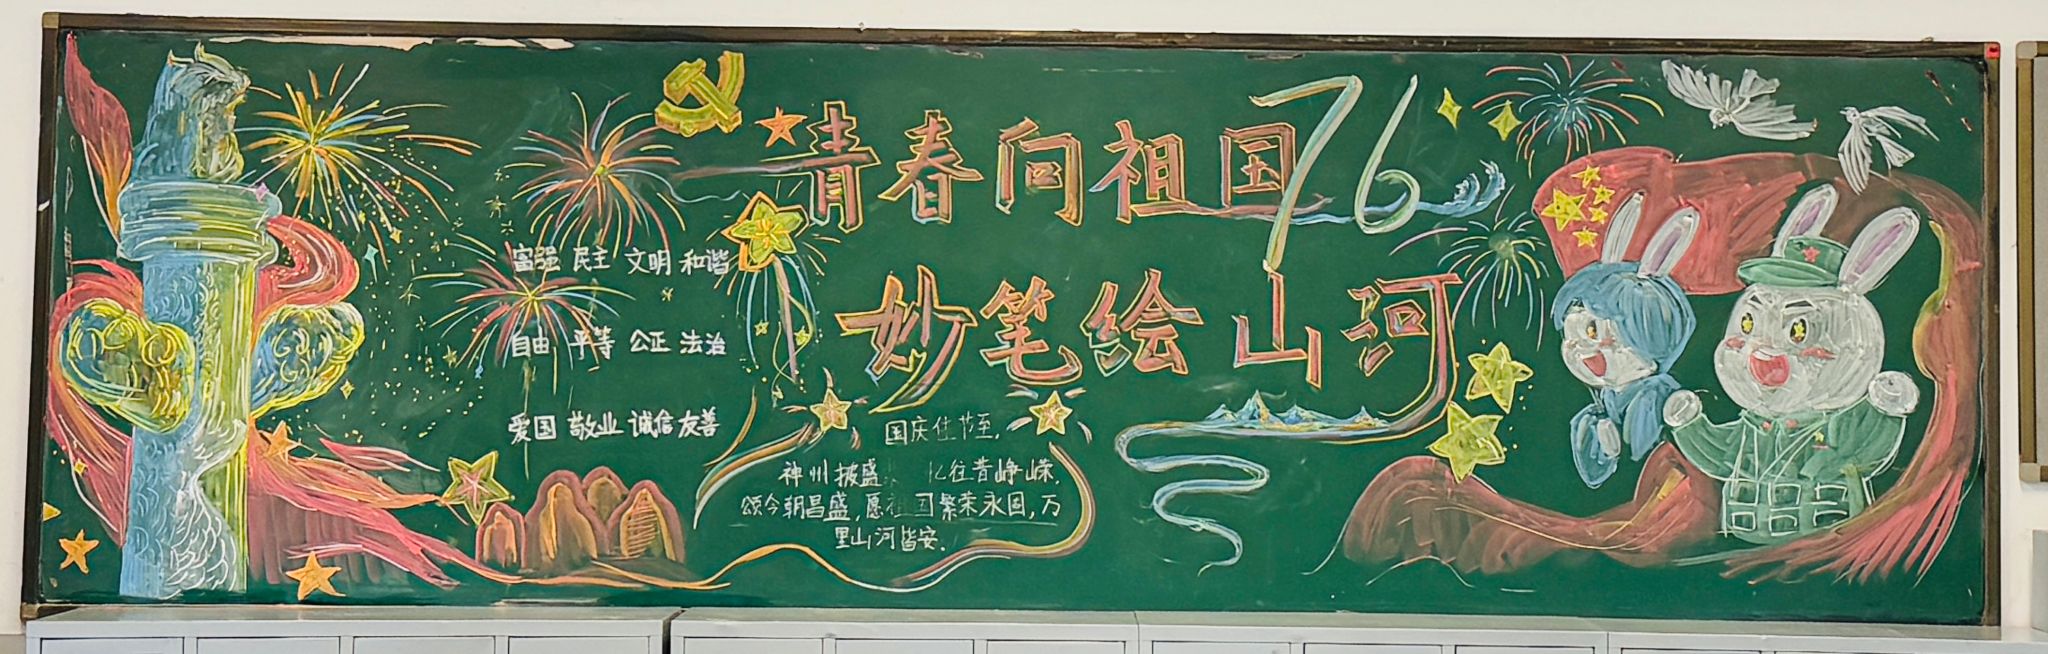 青春向祖国76
妙笔绘山河
富强 民主 文明 和谐
自由 平等 公正 法治
爱国 敬业 诚信 友善
国庆佳节至,
神州披盛 忆往昔峥嵘,
颂今朝昌盛,愿祖国繁荣永固,万
里山河皆安.